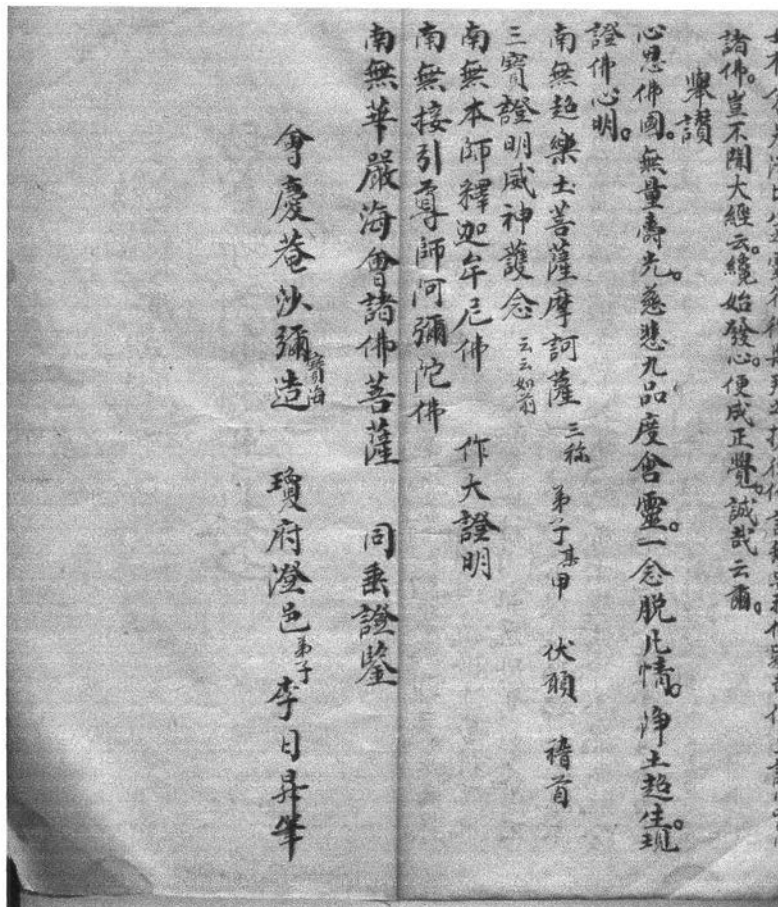 諸佛。豈不聞大經云。纔始發心。便成正覺。誠哉云爾。
舉讚
心思佛國。無量壽光。慈悲九品度含靈。一念脫凡情。淨土超生現
證佛心明。
南無超樂土菩薩摩訶薩 三稱 弟子某甲 伏願 稽首
三寶證明威神護念 云云如前
南無本師釋迦牟尼佛 作大證明
南無接引尊師阿彌陀佛
南無華嚴海會諸佛菩薩 同垂證鑒
會慶菴沙彌寶海造 瓊府澄邑弟子李日昇筆